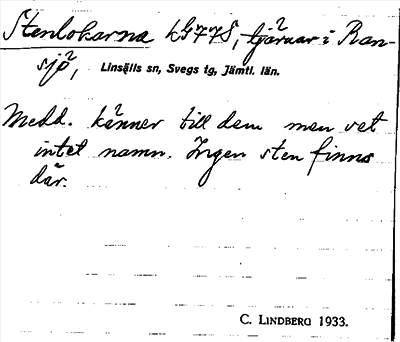 Stenlokarna LG77S, tjärnar i Ran-
sjö, Linsälls sn, Svegs tg, Jämtl. län.
Medd. känner till dem men vet
intet namn. Ingen sten finns
där.
C. LINDBERG 1933.